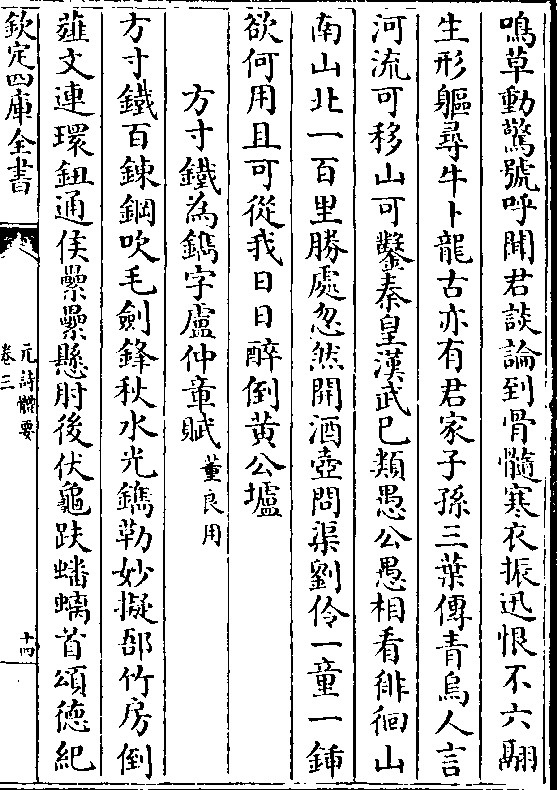 鳴草動驚號呼聞君談論到骨髓寒衣振迅恨不六翮
生形軀尋牛卜龍古亦有君家子孫三葉傳青烏人言
河流可移山可鑿秦皇漢武已類愚公愚相看徘徊山
南山北一百里勝處忽然開酒壺問渠劉伶一童一鍤
欲何用且可從我日日醉倒黃公壚
方寸鐵為鐫字盧仲章賦 董良用
方寸鐵百鍊鋼吹毛劍鋒秋水光鐫勒妙擬郘竹房倒
薤文連環鈕通侯纍纍懸肘後伏龜趺蟠螭首頌德紀
欽定四庫全書
元詩體要
卷三
十四